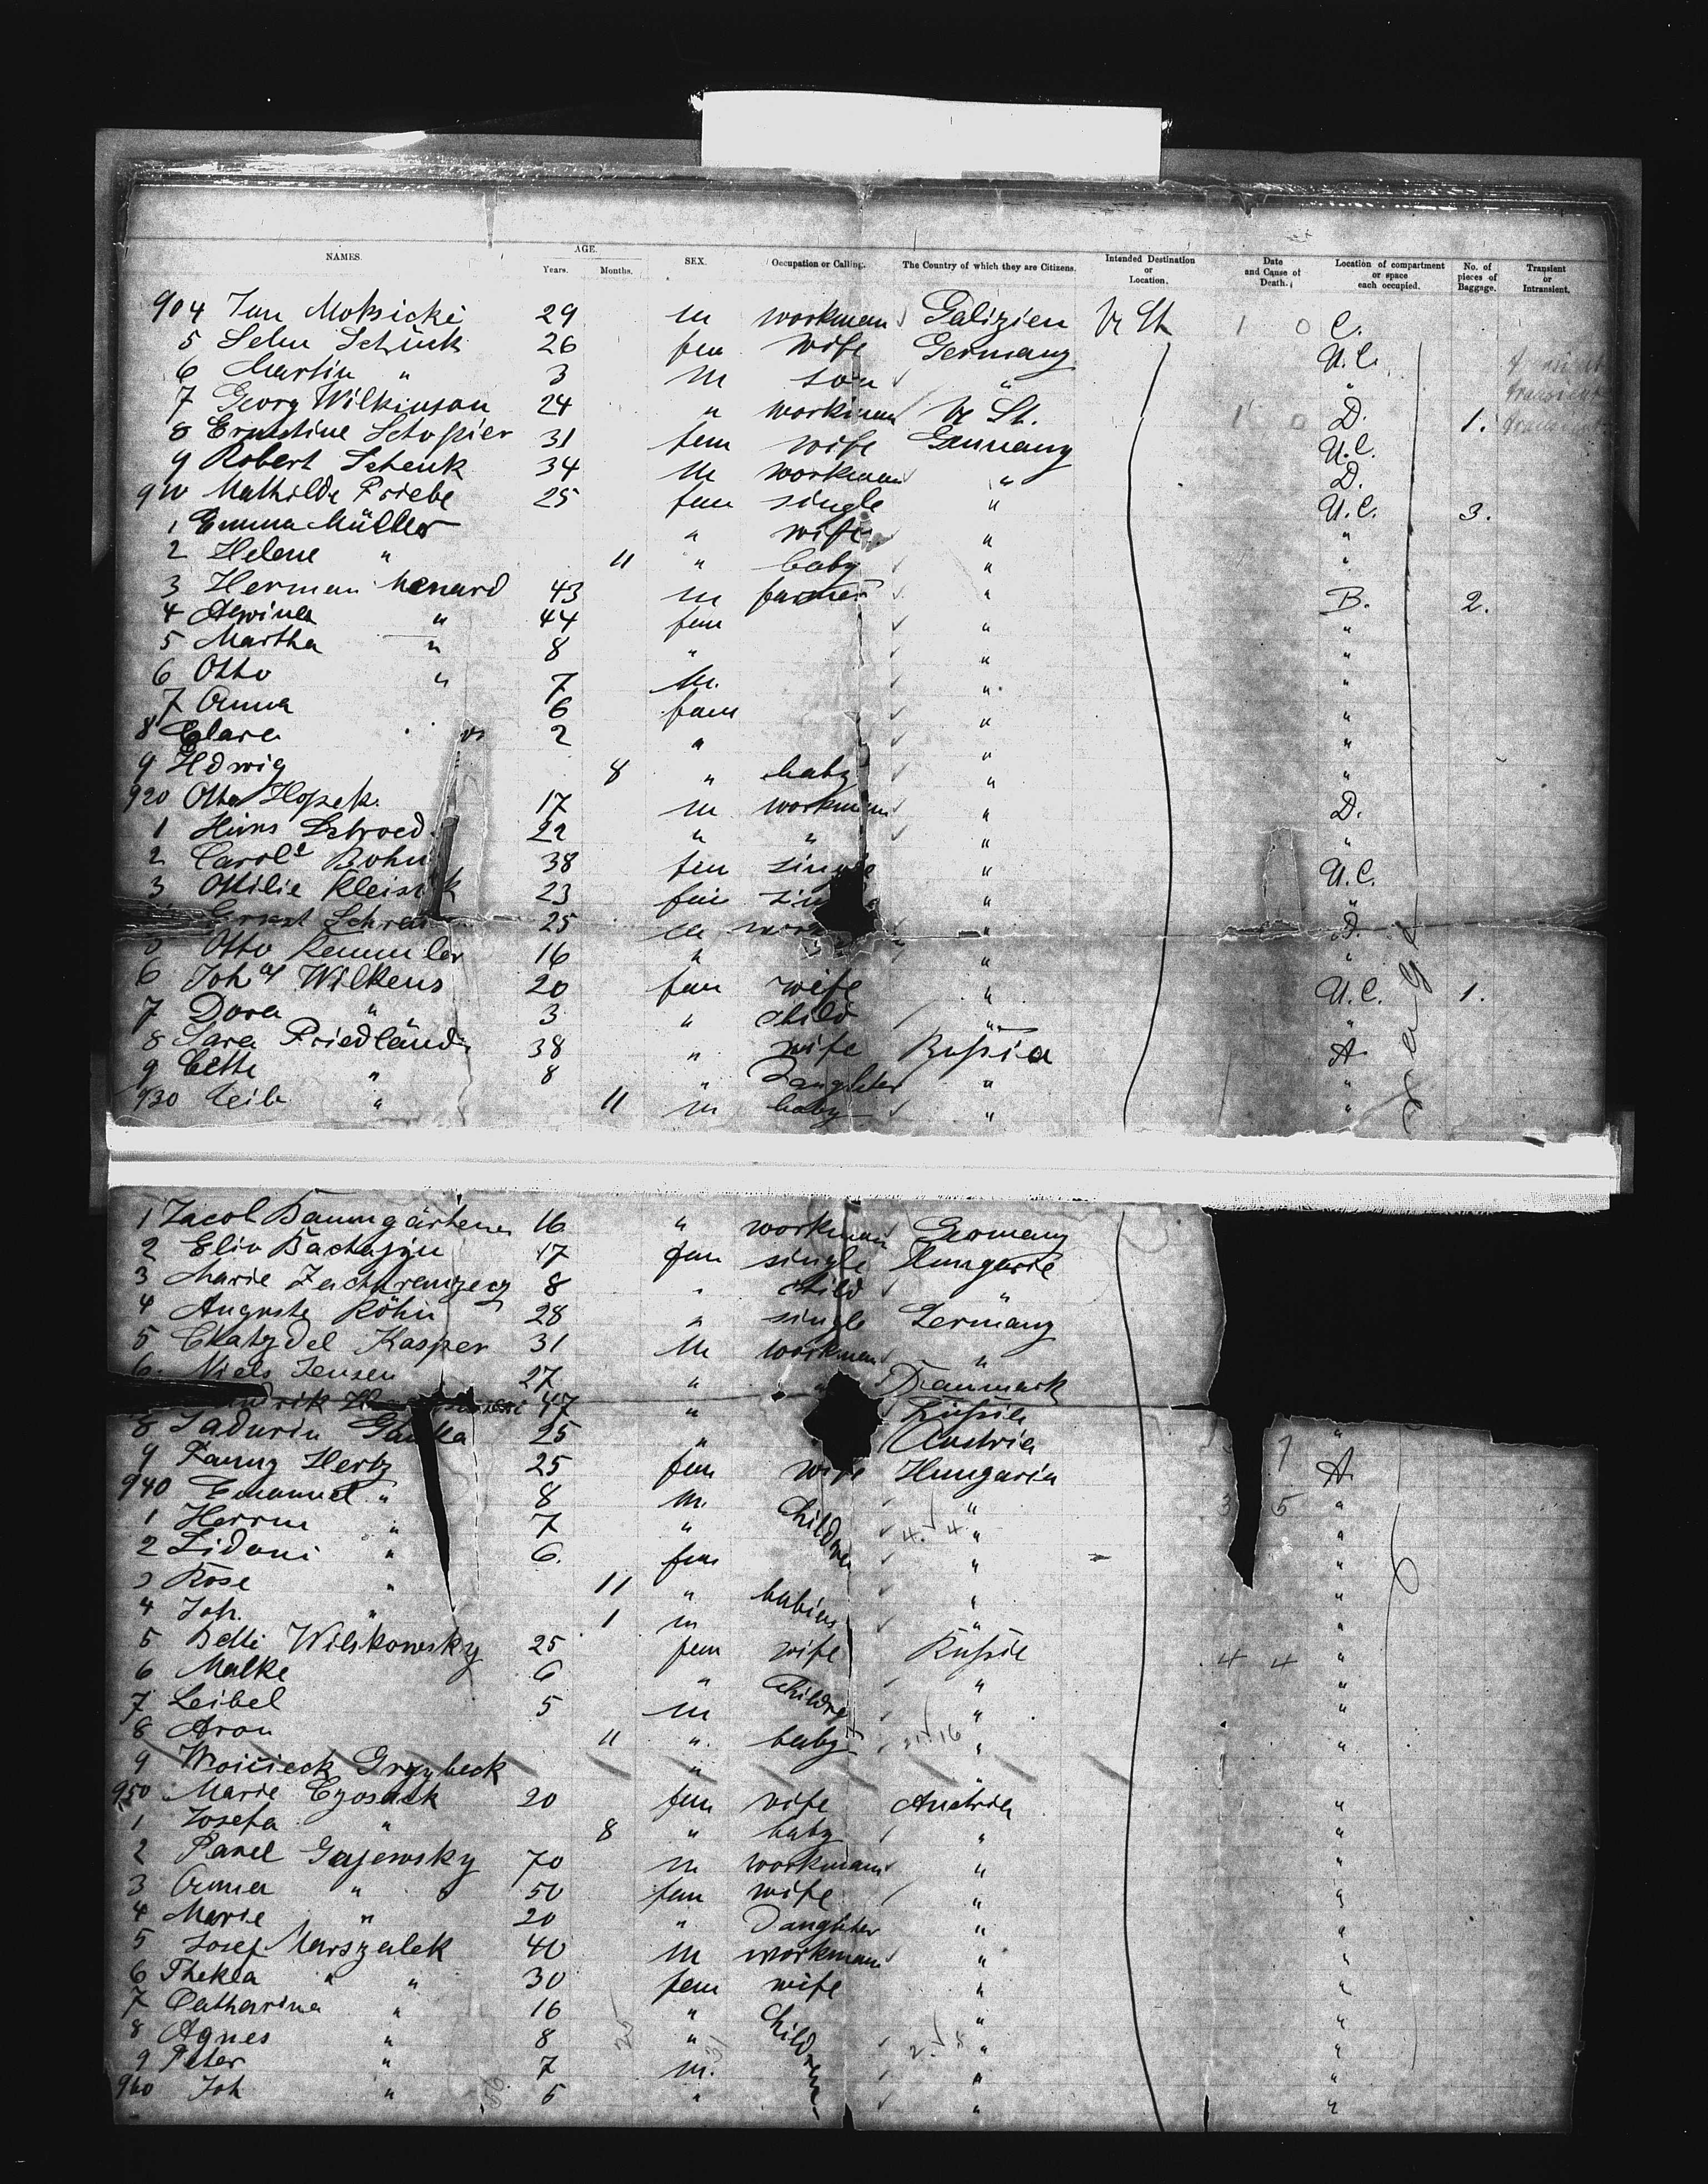 NAMES. AGE. Years. Months. SEX. Occupation or Calling. The Country of which they are Citizens. Intended Destination or Location. Date and Cause of Death. Location of compartment or space each occupied. No. of pieces of Baggage. Transient or Intransient.
904 Jan Moksicki 29 m workman Galizien V. St. 1 0 C.
5 26 fem wife Germany U.C.
6 Martin " 3 m son " " transient
7 Georg Wilkinson 24 " workman V. St. 1 0 D. 1. transient
8 Ernstine 31 fem wife Germany U.C.
9 Robert Schenk 34 m workman " D.
910 Mathilde Priebe 25 fem single " U.C. 3.
1 Emma Müller " wife " "
2 Helene " 11 " baby " "
3 Herman Menard 43 m farmer " B. 2.
4 Alwina " 44 fem " "
5 Martha " 8 " " "
6 Otto " 7 m. " "
7 Anna 6 fem " "
8 Clara " 2 " " "
9 Hdwig 8 " baby " "
920 Otto Hopek 17 m workman " D.
1 Hins Schroed 22 " " " "
2 Carol Bohn 38 fem single " U.C.
3 Ottilie 23 fem " "
Ernst 25 m " D.
5 Otto Kemmler 16 " " "
6 Joh Wilkens 20 fem wife " U.C. 1.
7 Dora " 3 " child " "
8 Sara Friedländ 38 " wife Russia A
9 " 8 " Daughter " "
930 Leib " 11 m baby " "
1 Jacob Baumgärtener 16 " workman Germany
2 17 fem single Hungarie
3 Marie 8 " child "
4 Auguste Röhn 28 " single Germany
5 Kasper 31 m workman "
6 Niels Jensen 27 " " Danmark
47 " Russia
8 25 " Austria "
9 Fanny Hertz 25 fem wife Hungaria A
940 Emanuel " 8 m. Children " 3 5 "
1 Herrm " 7 " 4 4 " "
2 Zidoni " 6 fem " "
3 Rose " 11 " babies " "
4 Joh. " 1 m " "
5 Betti Wilskowsky 25 fem wife Russie 4 4 "
6 Malke 6 " Children " "
7 Leibel 5 m " "
8 Aron 11 " baby 16 " "
9 Woicieck Grzybeck " "
950 Marie 20 fem wife Austria "
1 Josefa " 8 " baby " "
2 Pavel Gajewsky 70 m workman " "
3 Anna " 50 fem wife " "
4 Marie " 20 " Daughter " "
5 Josef Marszalek 40 m workman " "
6 Thekla " " 30 fem wife " "
7 Catharina " 16 " Children " "
8 Agnes " 8 " 2 8 " "
9 Peter " 7 m. 31 " "
960 Joh " 56 5 " " "